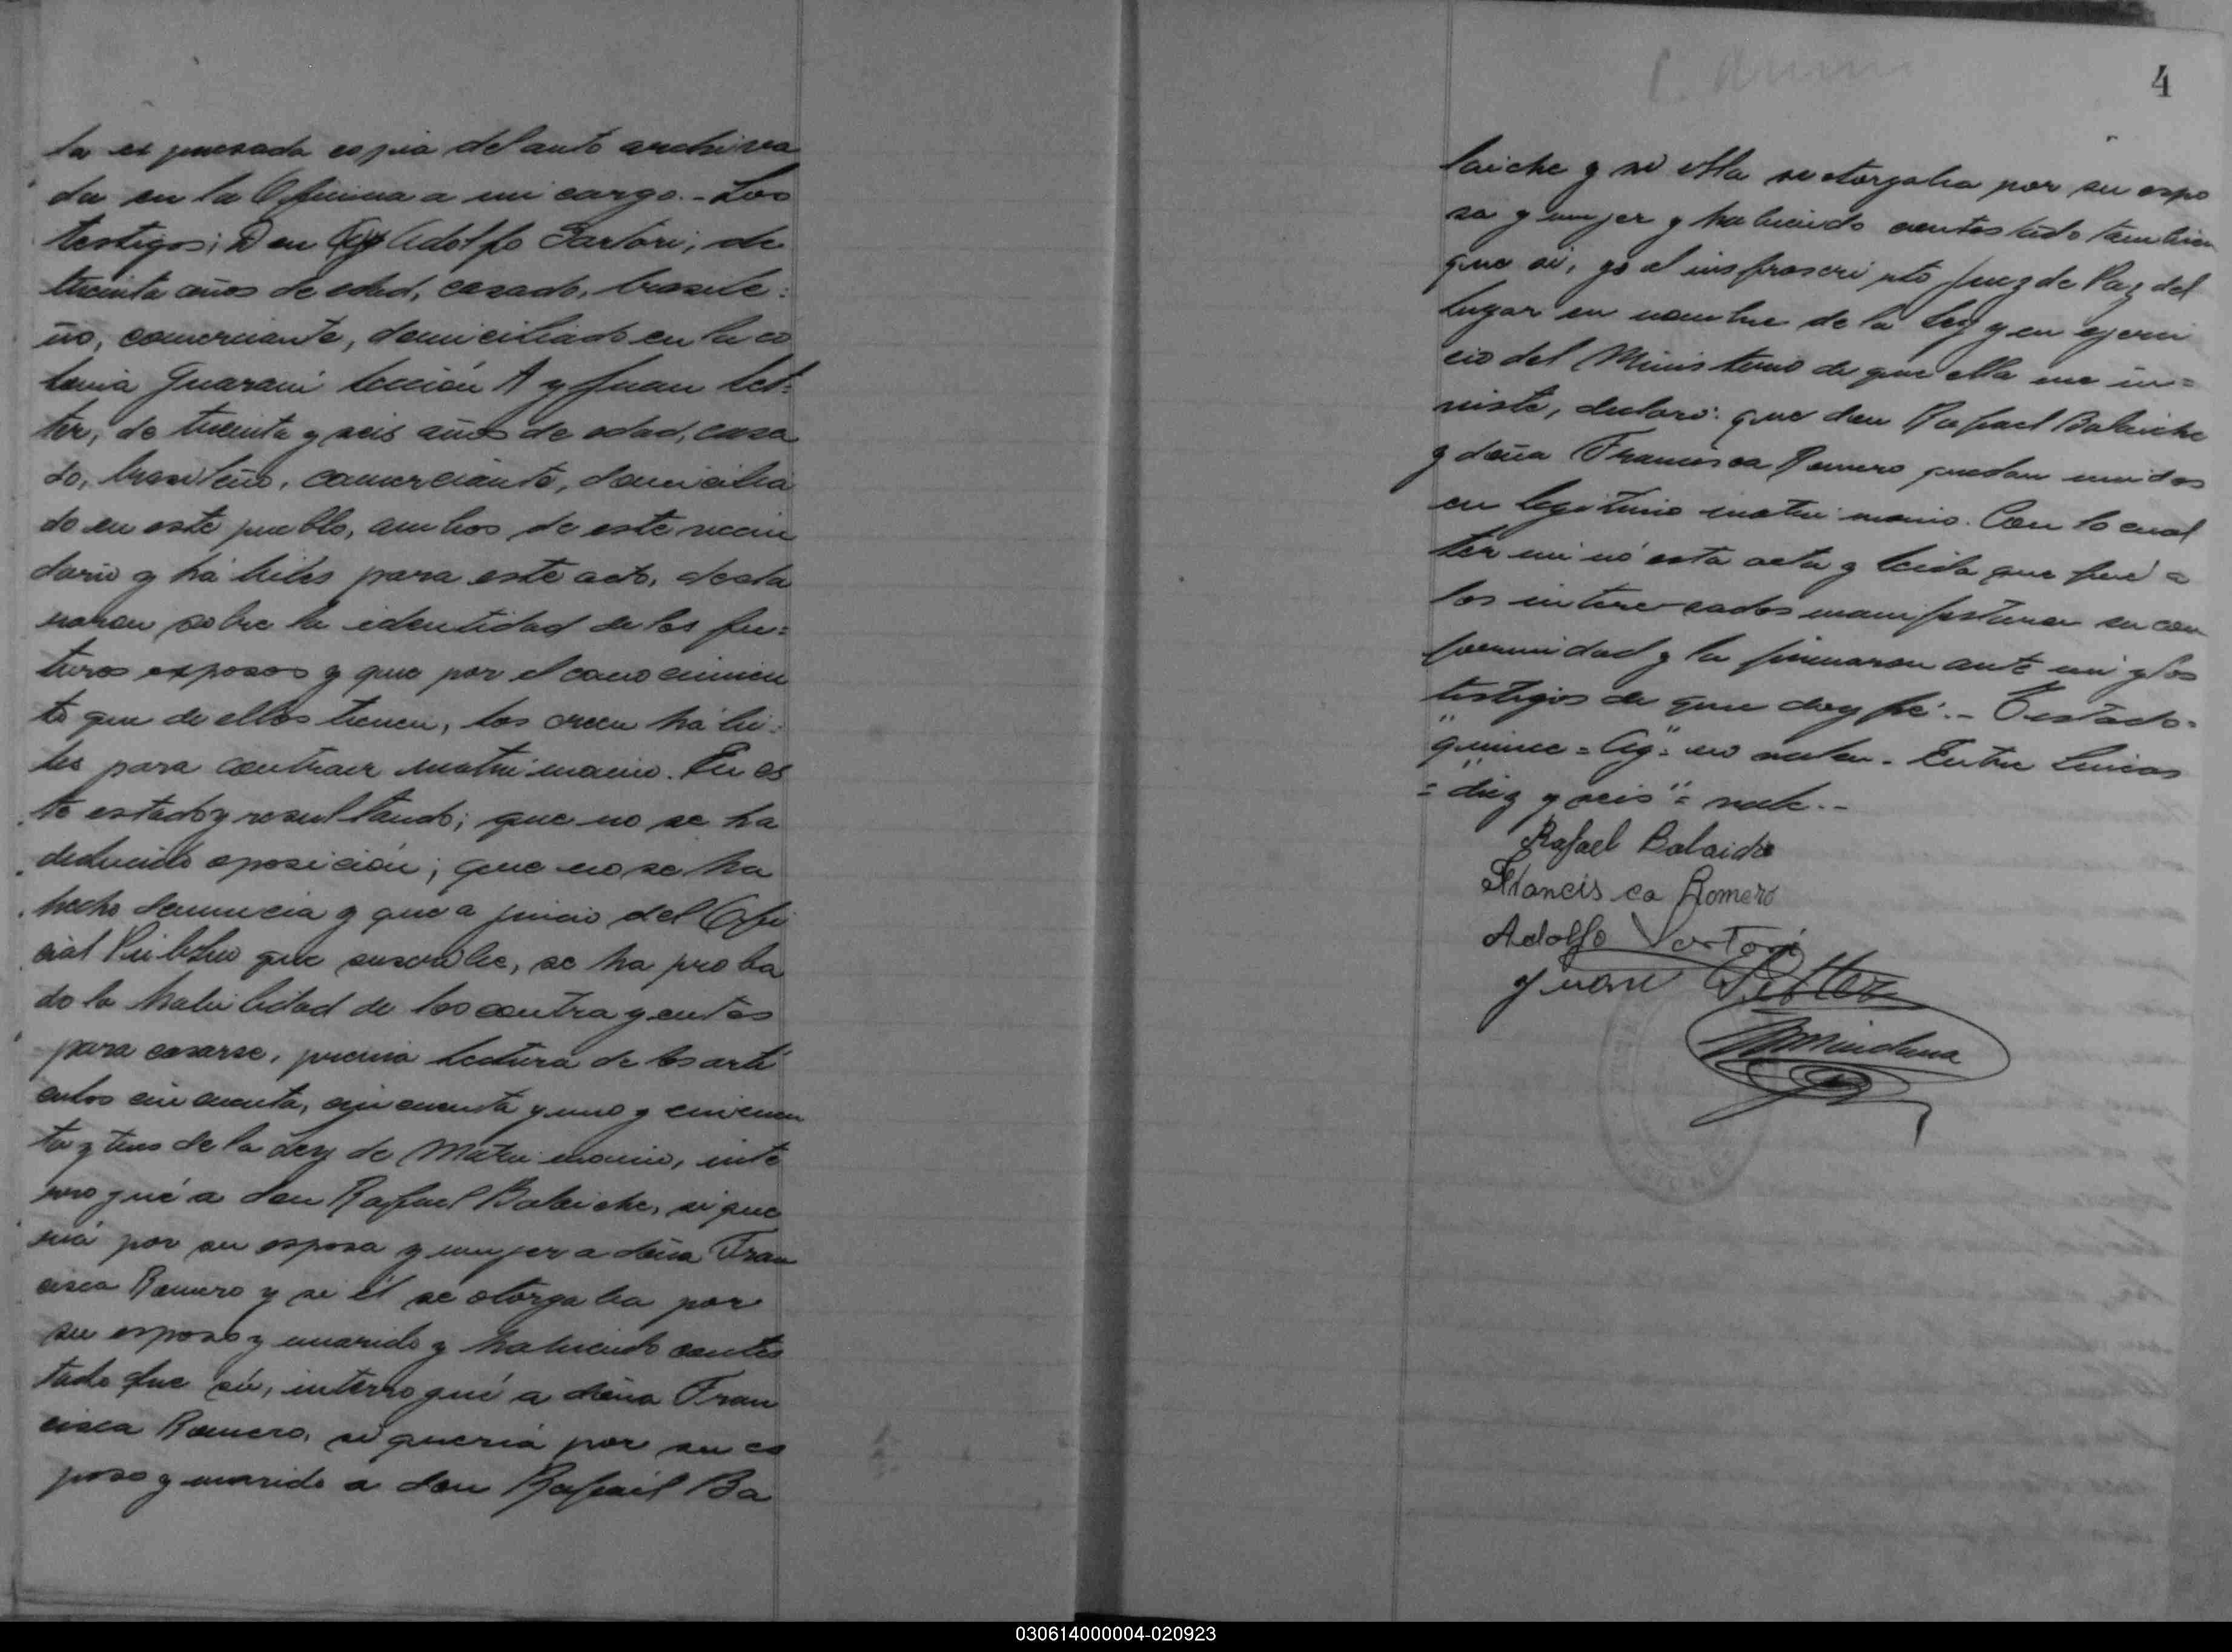 la expresada copia del auto archiva
da en la Oficina a mi cargo.- Los
testigos; Don Ag Adolfo Sartori; de
treinta años de edad, casado, brasile=
ño, comerciante, domiciliado en la co
lonia Guaraní sección A y Juan Set=
ter, de treinta y seis años de edad, casa
do, brasileño, comerciante, domicilia
do en este pueblo, ambos de este vecin
dario y hábiles para este acto, decla
raron sobre la identidad de los fu=
turos esposos y que por el conocimien
to que de ellos tienen, los creen hábi=
les para contraer matrimonio. En es
te estado y resultando; que no se ha
deducido oposición; que no se ha
hecho denuncia y que a juicio del Ofi
cial Público que suscribe, se ha proba
do la habilidad de los contrayentes
para casarse, previa lectura de los artí
culos cincuenta, cincuenta y uno y cincuen
ta y tres de la Ley de Matrimonio, inte
rrogué a don Rafael Balaiche, si que
ría por su esposa y mujer a doña Fran
cisca Romero y si él se otorgaba por
su esposo y marido y habiendo contes
tado que sí, interrogué a doña Fran
cisca Romero, si quería por su es
poso y marido a don Rafael Ba
4
laiche y si ella se otorgaba por su espo
sa y mujer y habiendo contestado tambien
que si, yo el infrascripto Juez de Paz del
lugar en nombre de la Ley y en ejerci
cio del Ministerio de que ella me in=
viste, declaro: que don Rafael Balaiche
y doña Francisca Romero quedan unidos
en legítimo matrimonio. Con lo cual
terminó esta acta y leida que fué a
los interesados manifestaron su con
formidad y la firmaron ante mi y los
testigos de que doy fé.- Testado=
"quince = Ag" = no valen - Entre lineas
= "diez y seis" = vale.-
Rafael Balaiche
Francisca Romero
Adolfo Sartori
Juan
030614000004-020923